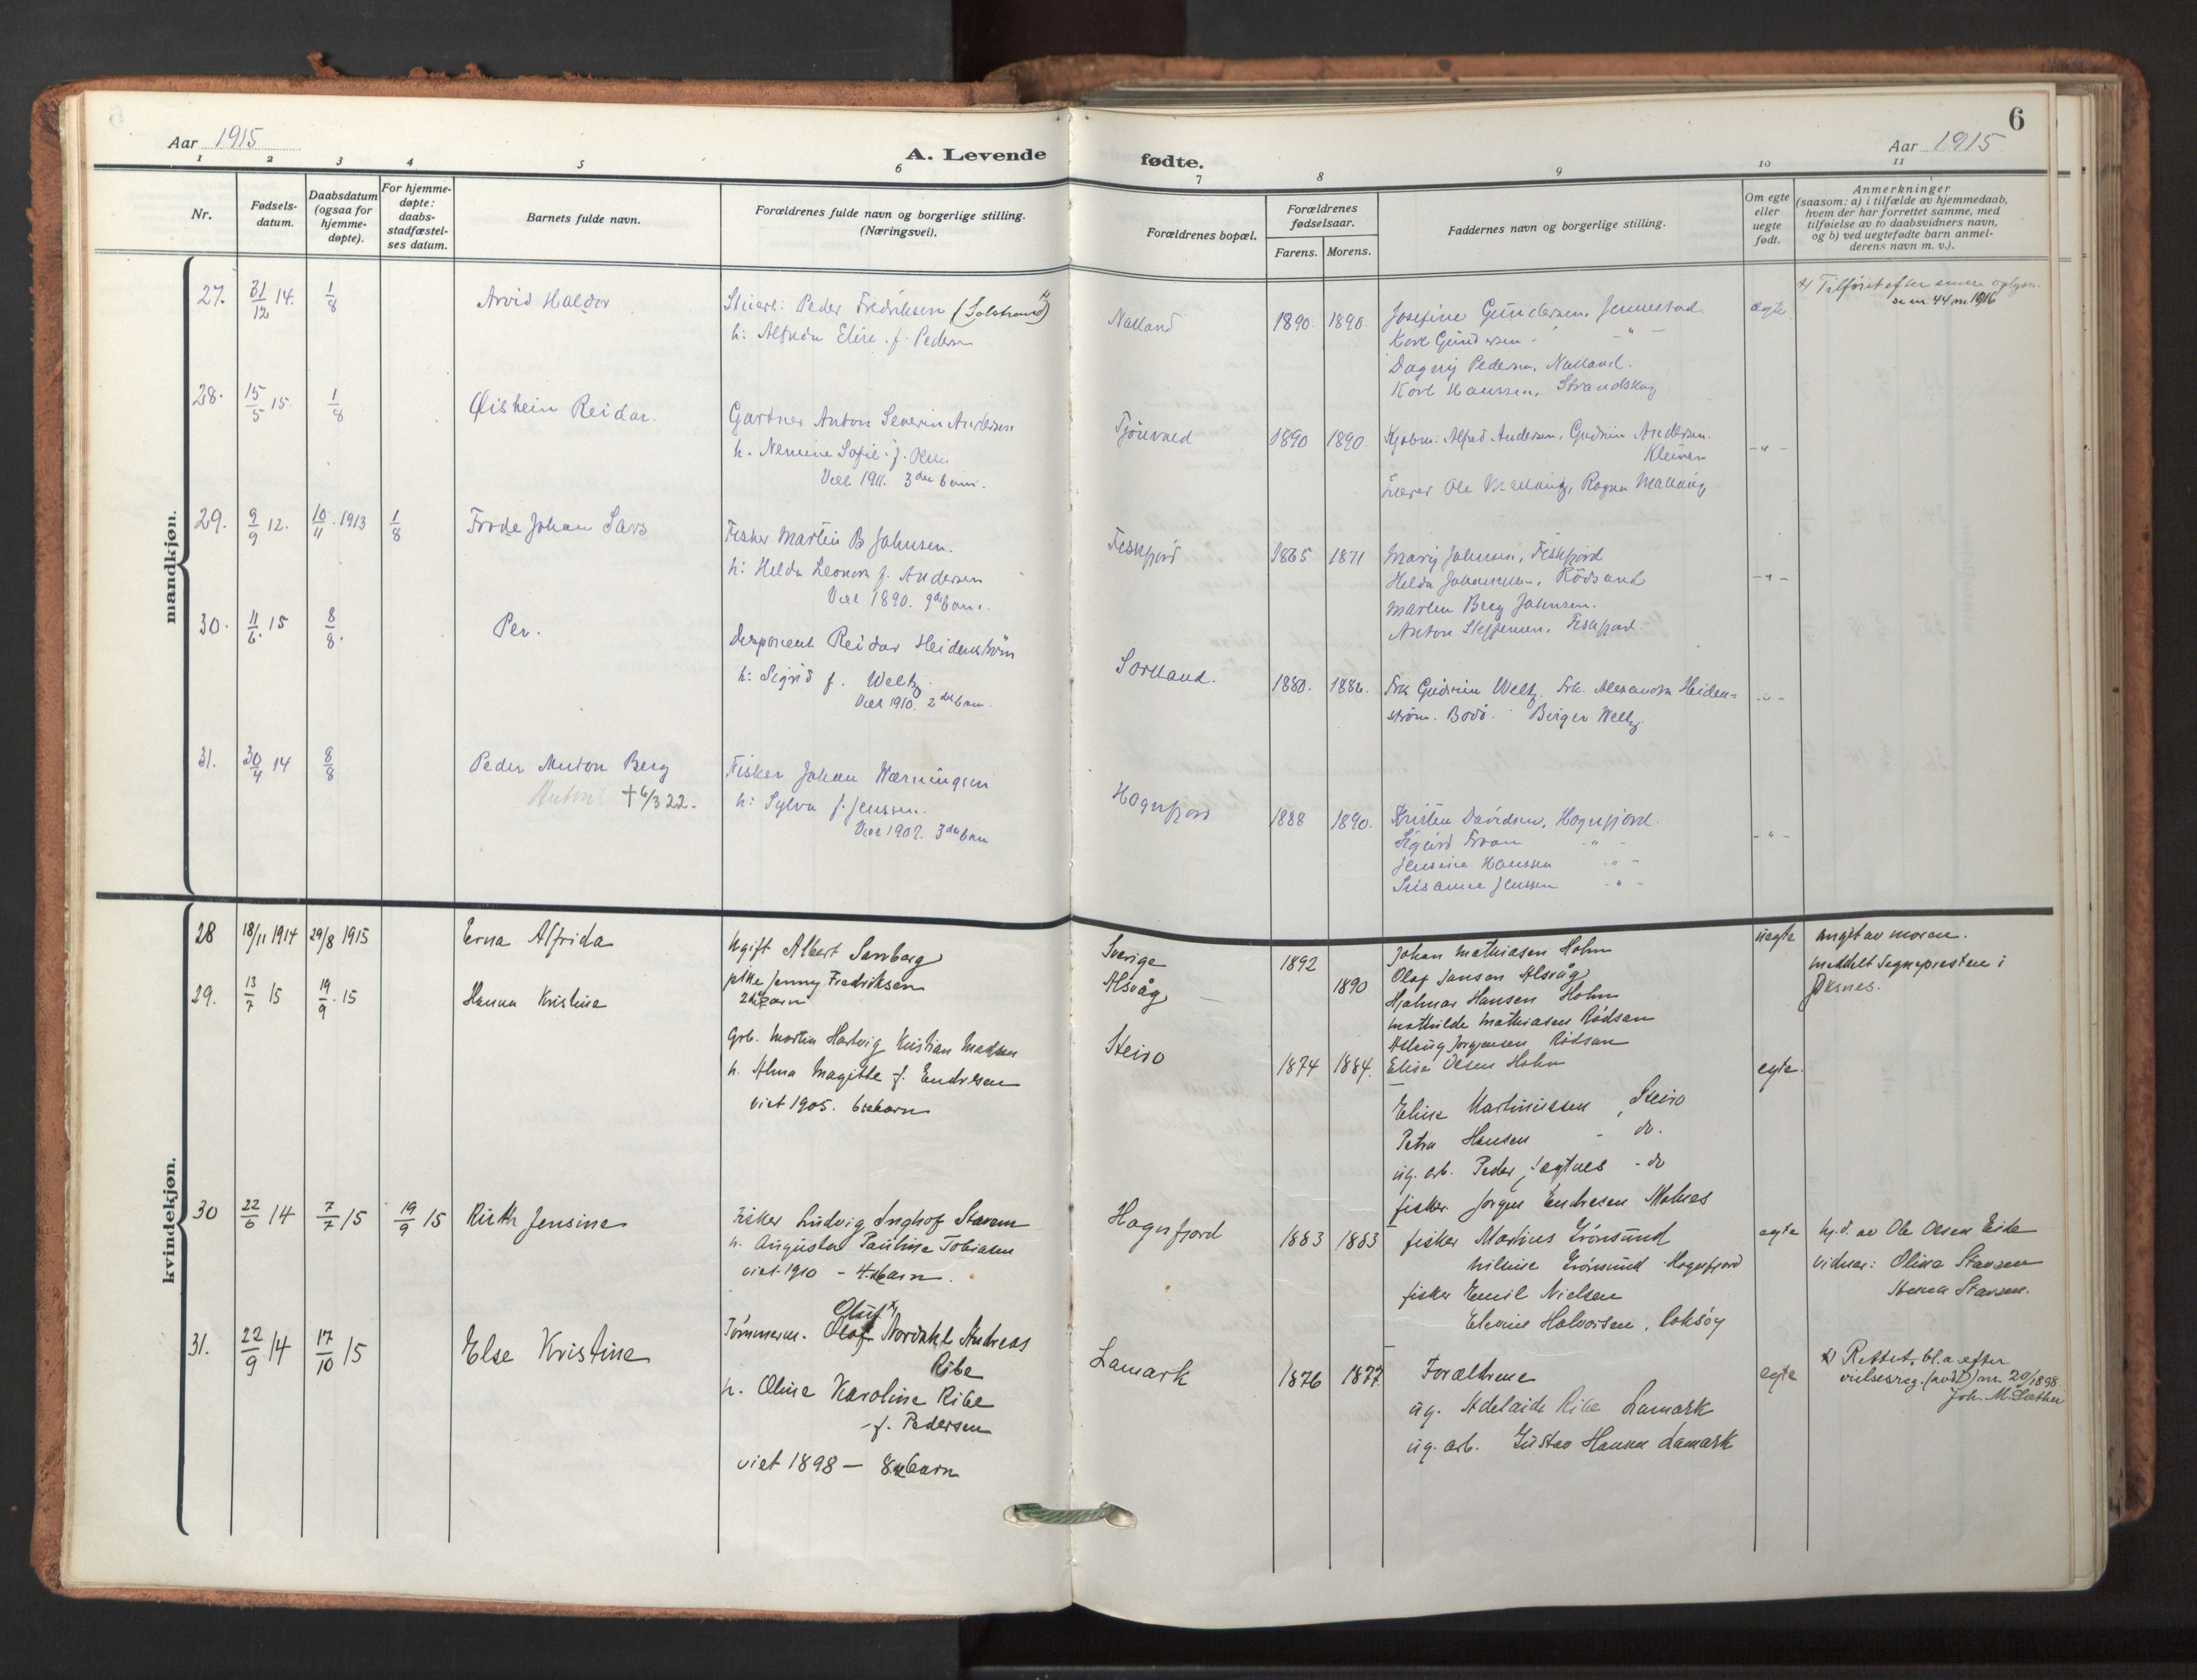 6
Aar 1915
A. Levende
fødte.
Aar 1915
1 2 3 4 5 6 7 8 9 10 11
Nr.
Fødsels-
datum.
Daabsdatum
(ogsaa for
hjemme-
døpte).
For hjemme-
døpte:
daabs-
stadfæstel-
ses datum.
Barnets fulde navn.
Forældrenes fulde navn og borgerlige stilling.
(Næringsvei).
Forældrenes bopæl.
Forældrenes
fødselsaar.
Farens. Morens.
Faddernes navn og borgerlige stilling.
Om egte
eller
uegte
født.
Anmerkninger
(saasom: a) i tilfælde av hjemmedaab,
hvem der har forrettet samme, med
tilføielse av to daabsvidners navn,
og b) ved uegtefødte barn anmel-
derens navn m. v.).
mandkjøn.
27. 31/12 14. 1/8 Arvid Haldor
Peder Fredriksen (Solstrand)
h: Alfrida Elise f. Pedersen
Natland 1890. 1890.
Josefine Gundersen, Jennestad.
Karl Gundersen - " -
Dagny Pedersen, Natland.
Karl Hanssen, Strandskog
egte
x) Tilføiet efter senere oplysn.
se nr 44 m. 1916
28. 15/5 15. 1/8 Øistein Reidar.
Gartner Anton Severin Andersen
h. Nemine Sofie f. Olsen
Viet 1911. 3die barn.
Tjönvned 1890 1890.
Kjøbm. Alfred Andersen, Gudrun Andersen.
Kleiven
Lærer Ole Malling, Ragna Malling
- " -
29. 9/9 12. 10/11 1913 1/8 Frode Johan Lars
Fisker Martin B Johnsen.
h: Helda Leonora f. Andersen
Viet 1890. 9de barn.
Fiskfjord 1865 1871
Mary Johnsen, Fiskfjord
Helda Johannesen, Rödsand
Martin Berg Johnsen.
Anton Steffensen, Fiskfjord.
- " -
30. 11/6. 15 8/8. Per.
Disponent Reidar Heidenström
h: Sigrid f. Weltz
Viet 1910. 2det barn.
Sortland. 1880. 1886.
Frk Gudrun Weltz. Frk. Alexandra Heiden=
ström. Bodö. Birger Weltz.
- " -
31. 30/4 14 8/8 Peder Anton Berg
Anton † 6/3 22.
Fisker Johan Wærningsen
h: Sylva f. Jenssen.
Viet 1907. 3die barn
Hognfjord 1888 1890.
Kristen Davidsen, Hognfjord.
Sigurd Froan - " -
Jensine Hanssen - " -
Susanne Jenssen - " -
- " -
kvindekjøn.
28 18/11 1914 29/8 1915 Erna Alfrida
Ugift Albert Sandberg
pike Jenny Fredriksen
2det barn
Sverige
Alsvåg
1892 1890
Johan Mathiasen Holm
Olaf Jansen Alsvåg
Hjalmar Hansen Holm
Mathilde Mathiasen Rödsan
Aslaug Jørgensen Rödsan
Elise Olsen Holm
uegte
angit av moren.
meddelt Sognepresten i
Øksnes.
29. 13/7 15 19/9. 15 Hanna Kristine
Grb. Morten Hartvig Kristian Madsen
h. Alma Magitte f. Endresen
viet 1905. 6te barn
Steiro 1874 1884.
Eline Martinussen, Steiro
Petra Hansen - do.
ug. arb. Peder Jegtnes - do
fisker Jørgen Endresen Molnes
egte.
30 22/6 14 7/7 15 19/9 15 Ruth Jensine
Fisker Ludvig Inghof Stavem
h. Augusta Pauline Tobiasen
viet 1910 - 4de barn.
Hognfjord 1883 1883
fisker Martins Grönsund
Grönsund Hognfjord
fisker Emil Nielsen
Halvorsen,
egte
hj. d. av Ole Olsen Eide
vidner: Olina Stavsen
31. 22/9 14 17/10 15 Else Kristine
Oluf x)
Tömmerm. Olaf Nordahl Andreas
Ribe
h. Oline Karoline Ribe
f. Pedersen
viet 1898 - 8de barn
Lamark 1876 1877.
Forældrene
ug. Adelaide Ribe Lamark
ug. arb. Gustav Hansen Lamark
egte
x) Rettet, bl.a. efter
vielsesreg. nr. 20/1898.
Joh. M. Sæther